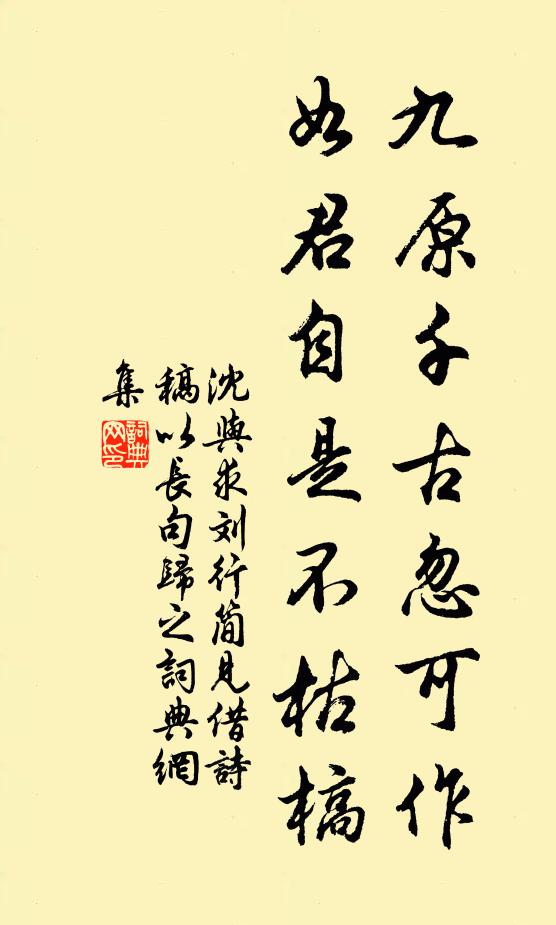 九原千古忽可作
如君自是不枯槁
沈與求刘行简見借詩
稿以長句歸之詞典網
集
詞典
网印